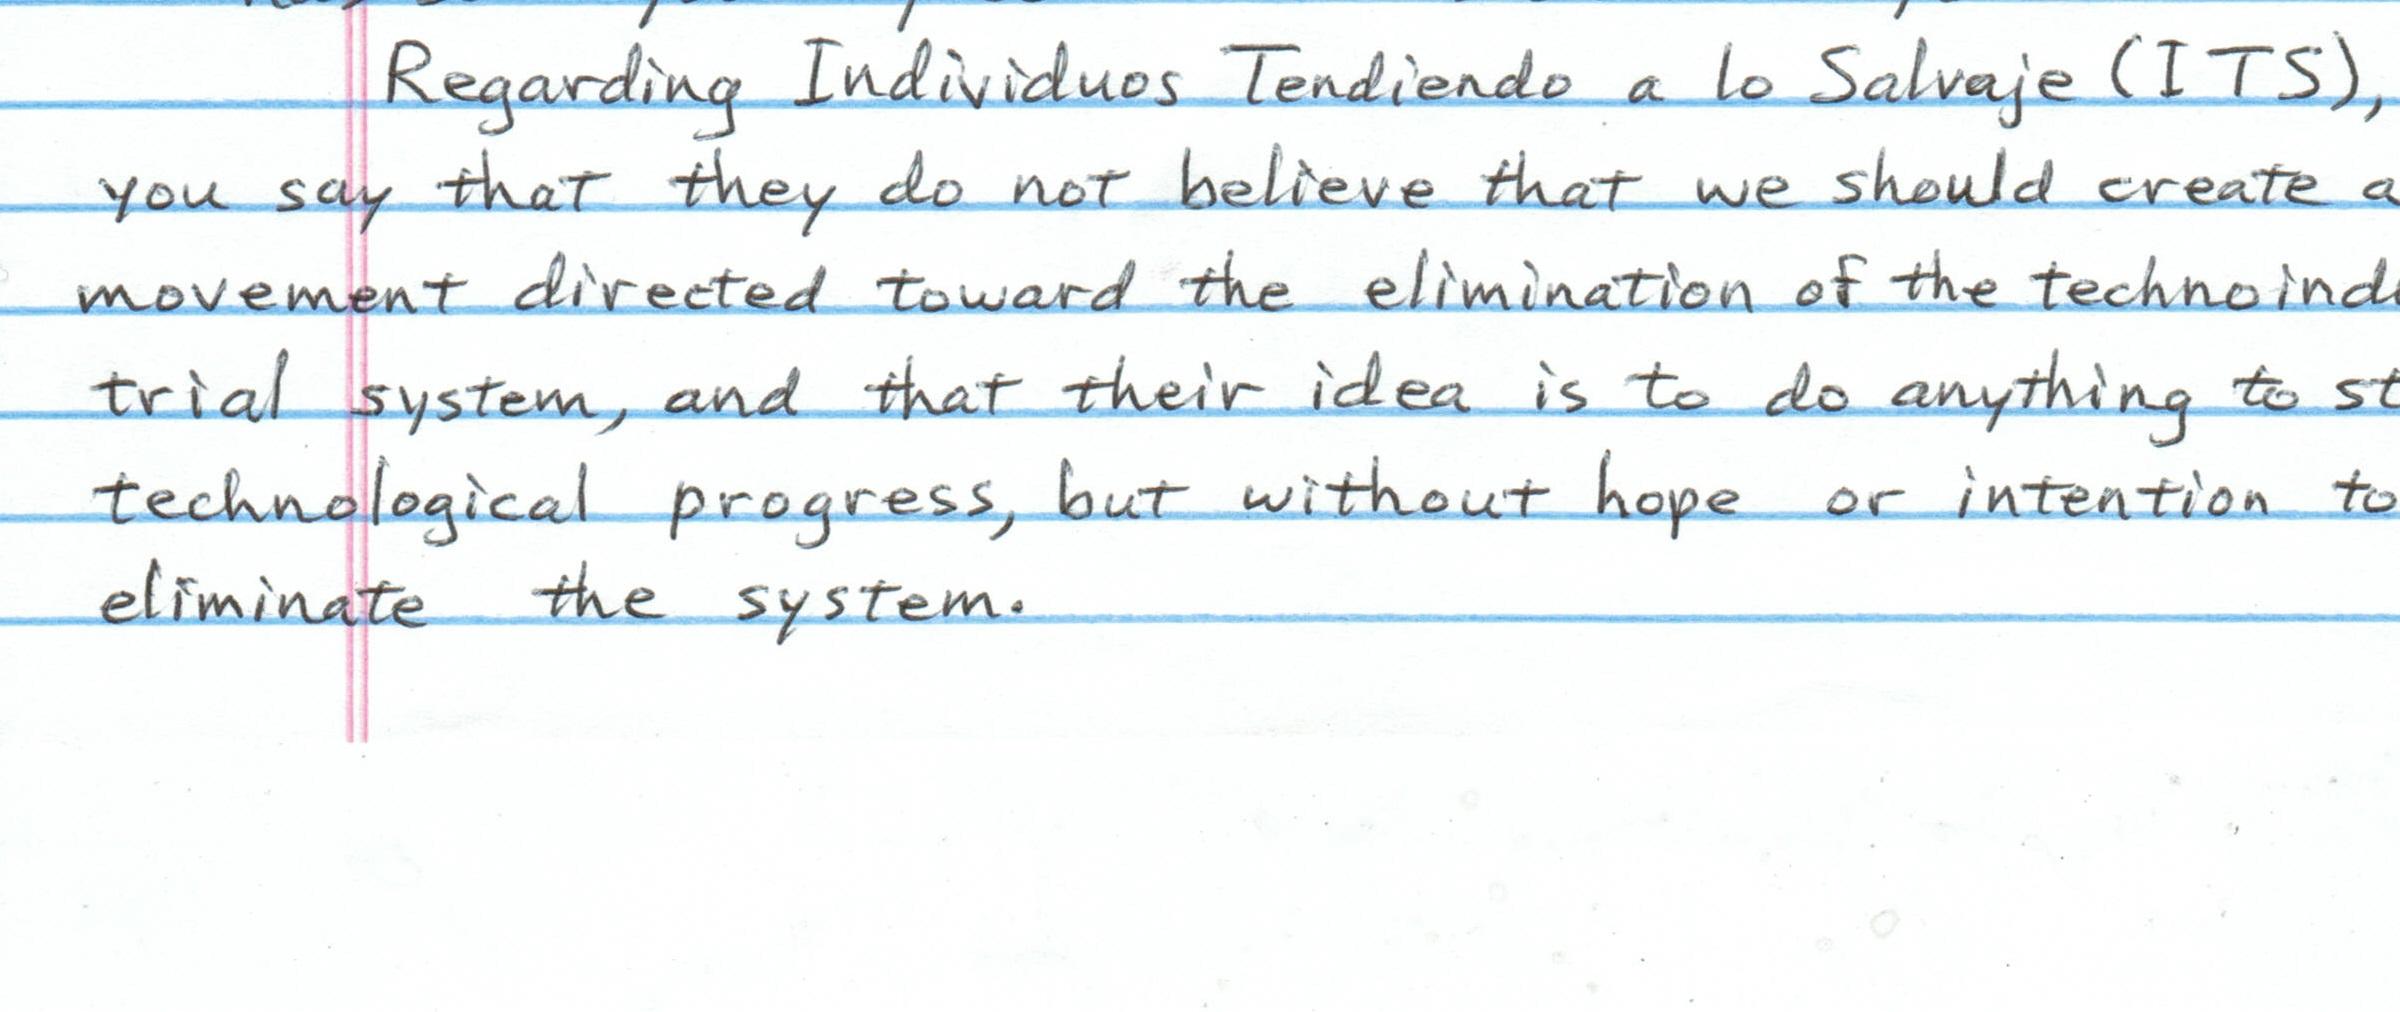 Regarding Individuos Tendiendo a lo Salvaje (ITS),
you say that they do not believe that we should create a
movement directed toward the elimination of the technoindu
trial system, and that their idea is to do anything to st
technological progress, but without hope or intention to
eliminate the system.